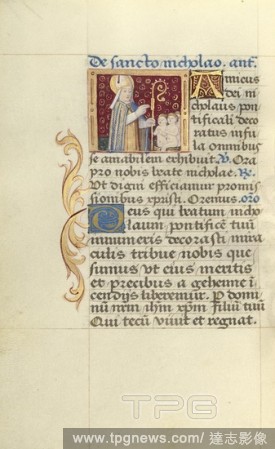 De sancto nicholao. ant.
Amicus
dei ni
cholaus pon
tificali deco
ratus infu
la omnibus
se amabilem exhibuit. V. Ora
pro nobis beate nicholae. R.
Ut digni efficiamur promis
sionibus xpristi. Oremus. oro
Deus qui beatum nicho
laum pontificẽ tuũ
innumeris decorasti mira
culis tribue nobis que
sumus ut eius meritis
et precibus a gehenne i
cendijs liberemur. P domi
nũ nrm ihm xpm filiũ tuũ
Qui tecũ vivit et regnat.
TPG
www.tpgnews.com / 達志影像